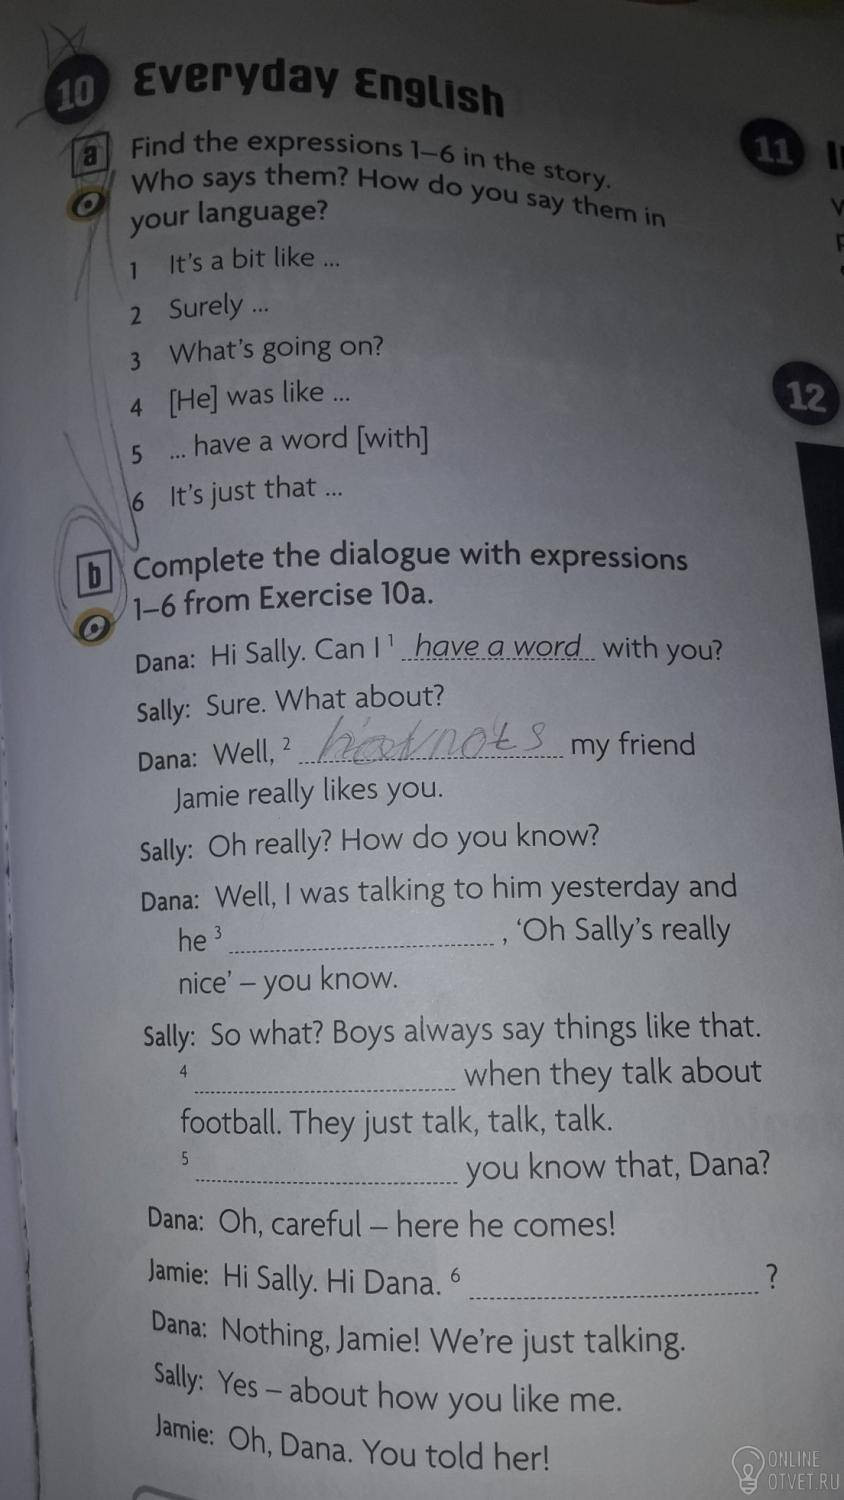 10 Everyday English
a Find the expressions 1–6 in the story.
Who says them? How do you say them in
your language?
1 It's a bit like ...
2 Surely ...
3 What's going on?
4 [He] was like ...
5 ... have a word [with]
6 It's just that ...
b Complete the dialogue with expressions
1–6 from Exercise 10a.
Dana: Hi Sally. Can I ¹ have a word with you?
Sally: Sure. What about?
Dana: Well, ² my friend
Jamie really likes you.
Sally: Oh really? How do you know?
Dana: Well, I was talking to him yesterday and
he ³ , ‘Oh Sally's really
nice’ – you know.
Sally: So what? Boys always say things like that.
⁴ when they talk about
football. They just talk, talk, talk.
⁵ you know that, Dana?
Dana: Oh, careful – here he comes!
Jamie: Hi Sally. Hi Dana. ⁶ ?
Dana: Nothing, Jamie! We're just talking.
Sally: Yes – about how you like me.
Jamie: Oh, Dana. You told her!
11
12
ONLINE
OTVET.RU